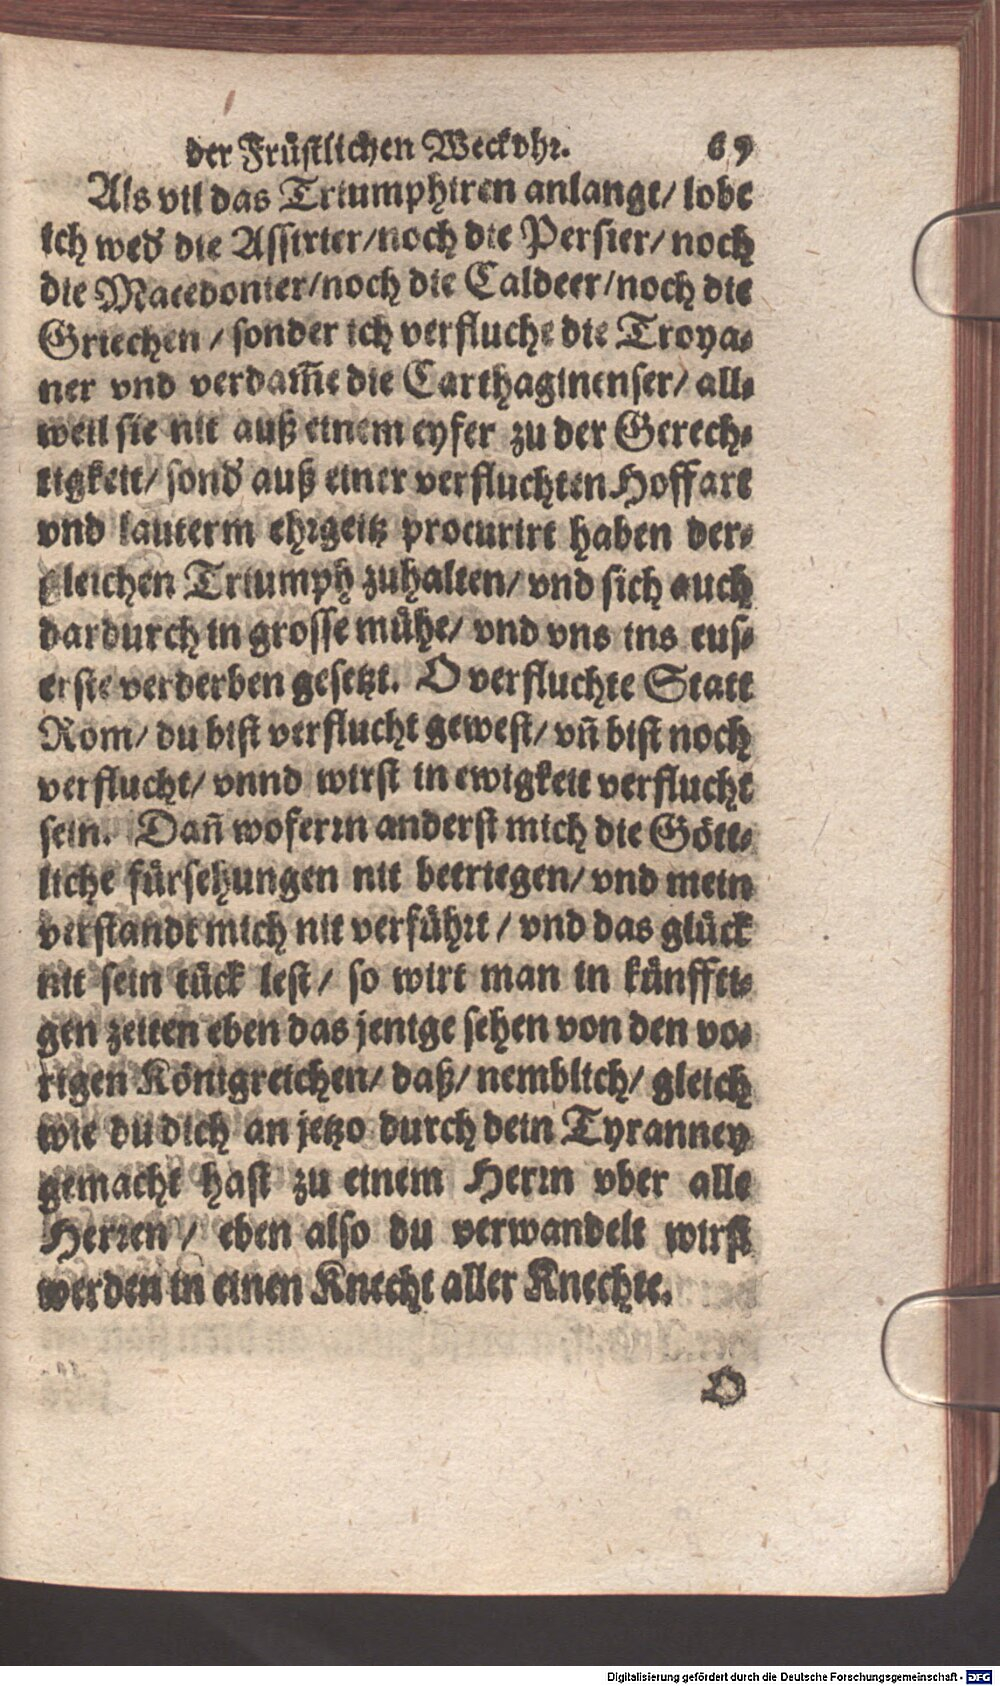 der Früstlichen Weckvhr. 69
Als vil das Triumphiren anlangt/ lobe
ich wed' die Assirier/noch die Persier/ noch
die Macedonier/noch die Caldeer/noch die
Griechen / sonder ich verfluche die Troya⸗
ner vnd verdam̃e die Carthaginenser/ all⸗
weil sie nit auß einem eyfer zu der Gerech⸗
tigkeit/ sond' auß einer verfluchten Hoffart
vnd lauterm ehrgeitz procurirt haben der⸗
gleichen Triumph zuhalten/ vnd sich auch
dardurch in grosse mühe/ vnd vns ins eus⸗
erste verderben gesetzt. O verfluchte Statt
Rom/ du bist verflucht gewest/ vñ bist noch
verflucht/ vnnd wirst in ewigkeit verflucht
sein. Dañ woferrn anderst mich die Gött⸗
liche fürsehungen nit betriegen/ vnd mein
verstandt mich nit verführt / vnd das glück
nit sein tück lest/ so wirt man in künffti⸗
gen zeiten eben das jenige sehen von den vo⸗
rigen Königreichen/ daß/ nemblich/ gleich
wie du dich an jetzo durch dein Tyranney
gemacht hast zu einem Herrn vber alle
Herren / eben also du verwandelt wirst
werden in einen Knecht aller Knechte.
O
Digitalisierung gefördert durch die Deutsche Forschungsgemeinschaft - DFG